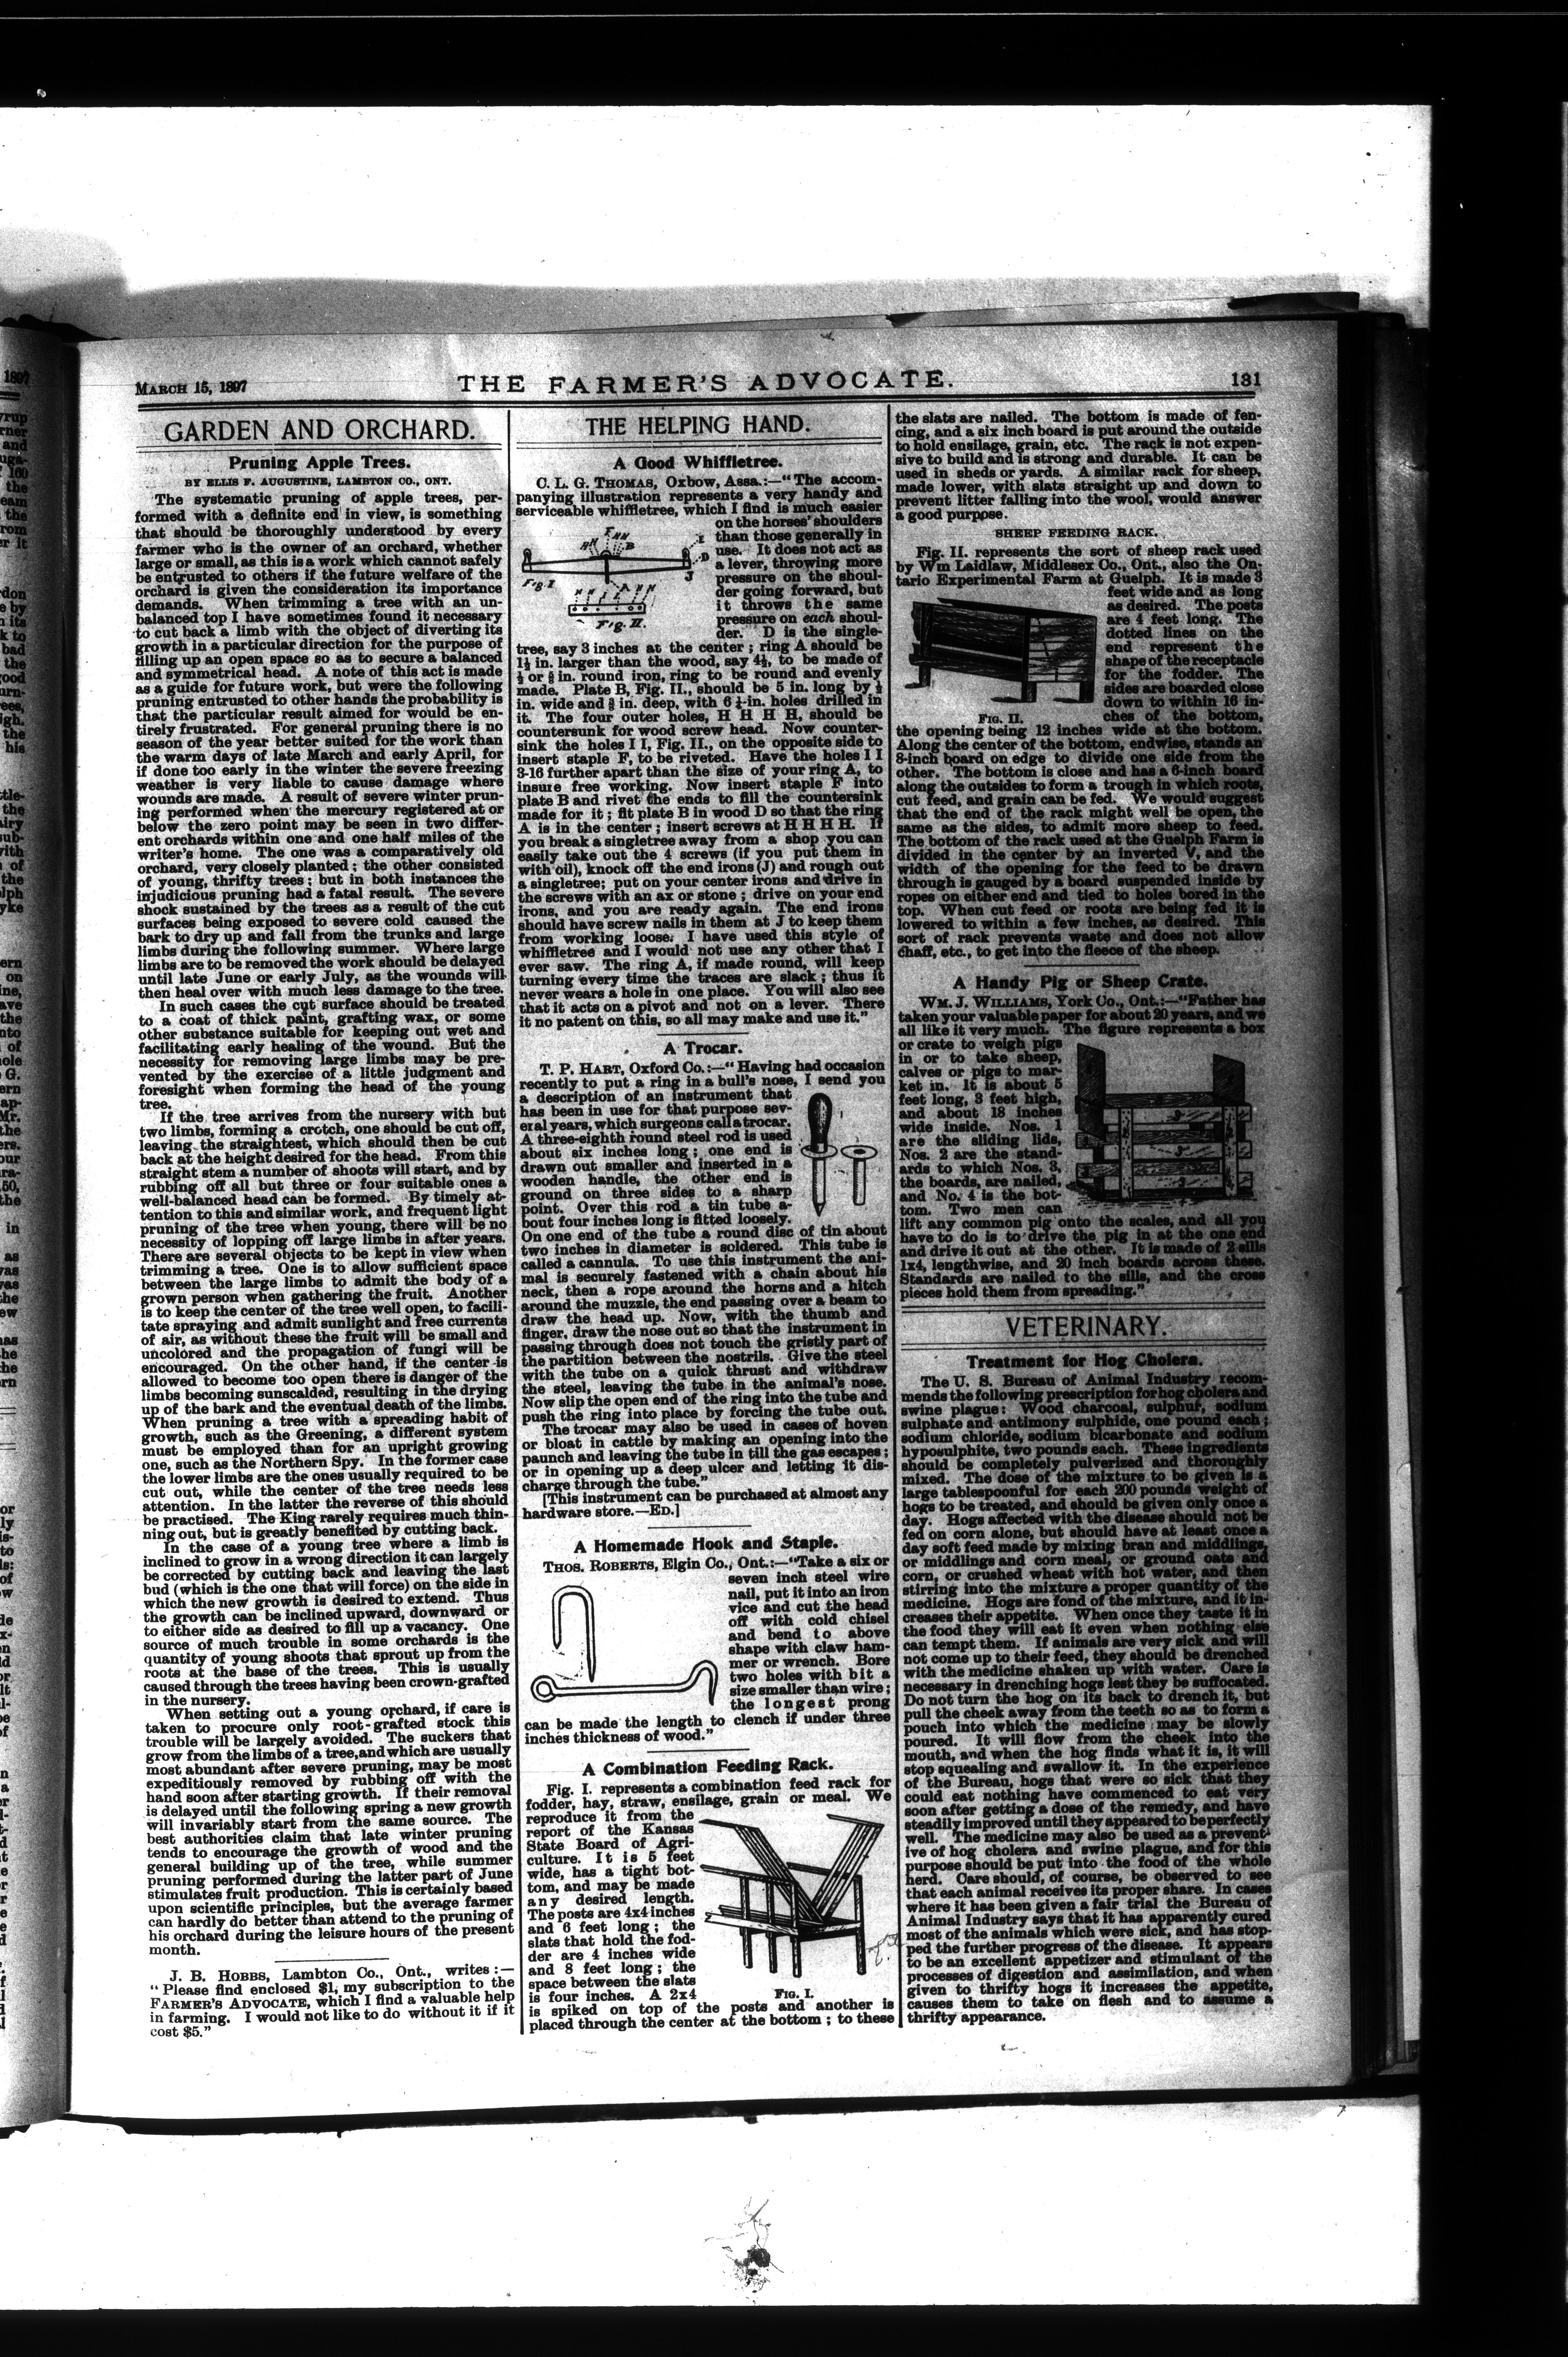 MARCH 15, 1897
THE FARMER'S ADVOCATE.
131
GARDEN AND ORCHARD.
Pruning Apple Trees.
BY ELLIS F. AUGUSTINE, LAMBTON CO., ONT.
The systematic pruning of apple trees, per-
formed with a definite end in view, is something
that should be thoroughly understood by every
farmer who is the owner of an orchard, whether
large or small, as this is a work which cannot safely
be entrusted to others if the future welfare of the
orchard is given the consideration its importance
demands. When trimming a tree with an un-
balanced top I have sometimes found it necessary
to cut back a limb with the object of diverting its
growth in a particular direction for the purpose of
filling up an open space so as to secure a balanced
and symmetrical head. A note of this act is made
as a guide for future work, but were the following
pruning entrusted to other hands the probability is
that the particular result aimed for would be en-
tirely frustrated. For general pruning there is no
season of the year better suited for the work than
the warm days of late March and early April, for
if done too early in the winter the severe freezing
weather is very liable to cause damage where
wounds are made. A result of severe winter prun-
ing performed when the mercury registered at or
below the zero point may be seen in two differ-
ent orchards within one and one half miles of the
writer's home. The one was a comparatively old
orchard, very closely planted; the other consisted
of young, thrifty trees; but in both instances the
injudicious pruning had a fatal result. The severe
shock sustained by the trees as a result of the cut
surfaces being exposed to severe cold caused the
bark to dry up and fall from the trunks and large
limbs during the following summer. Where large
limbs are to be removed the work should be delayed
until late June or early July, as the wounds will
then heal over with much less damage to the tree.
In such cases the cut surface should be treated
to a coat of thick paint, grafting wax, or some
other substance suitable for keeping out wet and
facilitating early healing of the wound. But the
necessity for removing large limbs may be pre-
vented by the exercise of a little judgment and
foresight when forming the head of the young
tree.
If the tree arrives from the nursery with but
two limbs, forming a crotch, one should be cut off,
leaving the straightest, which should then be cut
back at the height desired for the head. From this
straight stem a number of shoots will start, and by
rubbing off all but three or four suitable ones a
well-balanced head can be formed. By timely at-
tention to this and similar work, and frequent light
pruning of the tree when young, there will be no
necessity of lopping off large limbs in after years.
There are several objects to be kept in view when
trimming a tree. One is to allow sufficient space
between the large limbs to admit the body of a
grown person when gathering the fruit. Another
is to keep the center of the tree well open, to facili-
tate spraying and admit sunlight and free currents
of air, as without these the fruit will be small and
uncolored and the propagation of fungi will be
encouraged. On the other hand, if the center is
allowed to become too open there is danger of the
limbs becoming sunscalded, resulting in the drying
up of the bark and the eventual death of the limbs.
When pruning a tree with a spreading habit of
growth, such as the Greening, a different system
must be employed than for an upright growing
one, such as the Northern Spy. In the former case
the lower limbs are the ones usually required to be
cut out, while the center of the tree needs less
attention. In the latter the reverse of this should
be practised. The King rarely requires much thin-
ning out, but is greatly benefited by cutting back.
In the case of a young tree where a limb is
inclined to grow in a wrong direction it can largely
be corrected by cutting back and leaving the last
bud (which is the one that will force) on the side in
which the new growth is desired to extend. Thus
the growth can be inclined upward, downward or
to either side as desired to fill up a vacancy. One
source of much trouble in some orchards is the
quantity of young shoots that sprout up from the
roots at the base of the trees. This is usually
caused through the trees having been crown-grafted
in the nursery.
When setting out a young orchard, if care is
taken to procure only root-grafted stock this
trouble will be largely avoided. The suckers that
grow from the limbs of a tree, and which are usually
most abundant after severe pruning, may be most
expeditiously removed by rubbing off with the
hand soon after starting growth. If their removal
is delayed until the following spring a new growth
will invariably start from the same source. The
best authorities claim that late winter pruning
tends to encourage the growth of wood and the
general building up of the tree, while summer
pruning performed during the latter part of June
stimulates fruit production. This is certainly based
upon scientific principles, but the average farmer
can hardly do better than attend to the pruning of
his orchard during the leisure hours of the present
month.
J. B. HOBBS, Lambton Co., Ont., writes:—
"Please find enclosed $1, my subscription to the
FARMER'S ADVOCATE, which I find a valuable help
in farming. I would not like to do without it if it
cost $5."
THE HELPING HAND.
A Good Whiffletree.
C. L. G. THOMAS, Oxbow, Assa.:—"The accom-
panying illustration represents a very handy and
serviceable whiffletree, which I find is much easier
on the horses' shoulders
than those generally in
use. It does not act as
a lever, throwing more
pressure on the shoul-
der going forward, but
it throws the same
pressure on each shoul-
der. D is the single-
Fig. I
Fig. II.
tree, say 3 inches at the center; ring A should be
1½ in. larger than the wood, say 4½, to be made of
½ or ⅝ in. round iron, ring to be round and evenly
made. Plate B, Fig. II., should be 5 in. long by ½
in. wide and ⅜ in. deep, with 6 ¼-in. holes drilled in
it. The four outer holes, H H H H, should be
countersunk for wood screw head. Now counter-
sink the holes I I, Fig. II., on the opposite side to
insert staple F, to be riveted. Have the holes I I
3-16 further apart than the size of your ring A, to
insure free working. Now insert staple F into
plate B and rivet the ends to fill the countersink
made for it; fit plate B in wood D so that the ring
A is in the center; insert screws at H H H H. If
you break a singletree away from a shop you can
easily take out the 4 screws (if you put them in
with oil), knock off the end irons (J) and rough out
a singletree; put on your center irons and drive in
the screws with an ax or stone; drive on your end
irons, and you are ready again. The end irons
should have screw nails in them at J to keep them
from working loose. I have used this style of
whiffletree and I would not use any other that I
ever saw. The ring A, if made round, will keep
turning every time the traces are slack; thus it
never wears a hole in one place. You will also see
that it acts on a pivot and not on a lever. There
it no patent on this, so all may make and use it."
A Trocar.
T. P. HART, Oxford Co.:—"Having had occasion
recently to put a ring in a bull's nose, I send you
a description of an instrument that
has been in use for that purpose sev-
eral years, which surgeons call a trocar.
A three-eighth round steel rod is used
about six inches long; one end is
drawn out smaller and inserted in a
wooden handle, the other end is
ground on three sides to a sharp
point. Over this rod a tin tube a-
bout four inches long is fitted loosely.
On one end of the tube a round disc of tin about
two inches in diameter is soldered. This tube is
called a cannula. To use this instrument the ani-
mal is securely fastened with a chain about his
neck, then a rope around the horns and a hitch
around the muzzle, the end passing over a beam to
draw the head up. Now, with the thumb and
finger, draw the nose out so that the instrument in
passing through does not touch the gristly part of
the partition between the nostrils. Give the steel
with the tube on a quick thrust and withdraw
the steel, leaving the tube in the animal's nose.
Now slip the open end of the ring into the tube and
push the ring into place by forcing the tube out.
The trocar may also be used in cases of hoven
or bloat in cattle by making an opening into the
paunch and leaving the tube in till the gas escapes;
or in opening up a deep ulcer and letting it dis-
charge through the tube."
[This instrument can be purchased at almost any
hardware store.—ED.]
A Homemade Hook and Staple.
THOS. ROBERTS, Elgin Co., Ont.:—"Take a six or
seven inch steel wire
nail, put it into an iron
vice and cut the head
off with cold chisel
and bend to above
shape with claw ham-
mer or wrench. Bore
two holes with bit a
size smaller than wire;
the longest prong
can be made the length to clench if under three
inches thickness of wood."
A Combination Feeding Rack.
Fig. I. represents a combination feed rack for
fodder, hay, straw, ensilage, grain or meal. We
reproduce it from the
report of the Kansas
State Board of Agri-
culture. It is 5 feet
wide, has a tight bot-
tom, and may be made
any desired length.
The posts are 4x4 inches
and 6 feet long; the
slats that hold the fod-
der are 4 inches wide
and 8 feet long; the
space between the slats
is four inches. A 2x4
FIG. I.
is spiked on top of the posts and another is
placed through the center at the bottom; to these
the slats are nailed. The bottom is made of fen-
cing, and a six inch board is put around the outside
to hold ensilage, grain, etc. The rack is not expen-
sive to build and is strong and durable. It can be
used in sheds or yards. A similar rack for sheep,
made lower, with slats straight up and down to
prevent litter falling into the wool, would answer
a good purpose.
SHEEP FEEDING RACK.
Fig. II. represents the sort of sheep rack used
by Wm Laidlaw, Middlesex Co., Ont., also the On-
tario Experimental Farm at Guelph. It is made 3
feet wide and as long
as desired. The posts
are 4 feet long. The
dotted lines on the
end represent the
shape of the receptacle
for the fodder. The
sides are boarded close
down to within 16 in-
ches of the bottom,
FIG. II.
the opening being 12 inches wide at the bottom.
Along the center of the bottom, endwise, stands an
8-inch board on edge to divide one side from the
other. The bottom is close and has a 6-inch board
along the outsides to form a trough in which roots,
cut feed, and grain can be fed. We would suggest
that the end of the rack might well be open, the
same as the sides, to admit more sheep to feed.
The bottom of the rack used at the Guelph Farm is
divided in the center by an inverted V, and the
width of the opening for the feed to be drawn
through is gauged by a board suspended inside by
ropes on either end and tied to holes bored in the
top. When cut feed or roots are being fed it is
lowered to within a few inches, as desired. This
sort of rack prevents waste and does not allow
chaff, etc., to get into the fleece of the sheep.
A Handy Pig or Sheep Crate.
WM. J. WILLIAMS, York Co., Ont.:—"Father has
taken your valuable paper for about 20 years, and we
all like it very much. The figure represents a box
or crate to weigh pigs
in or to take sheep,
calves or pigs to mar-
ket in. It is about 5
feet long, 3 feet high,
and about 18 inches
wide inside. Nos. 1
are the sliding lids,
Nos. 2 are the stand-
ards to which Nos. 3,
the boards, are nailed,
and No. 4 is the bot-
tom. Two men can
lift any common pig onto the scales, and all you
have to do is to drive the pig in at the one end
and drive it out at the other. It is made of 2 sills
1x4, lengthwise, and 20 inch boards across these.
Standards are nailed to the sills, and the cross
pieces hold them from spreading."
VETERINARY.
Treatment for Hog Cholera.
The U. S. Bureau of Animal Industry recom-
mends the following prescription for hog cholera and
swine plague: Wood charcoal, sulphur, sodium
sulphate and antimony sulphide, one pound each;
sodium chloride, sodium bicarbonate and sodium
hyposulphite, two pounds each. These ingredients
should be completely pulverized and thoroughly
mixed. The dose of the mixture to be given is a
large tablespoonful for each 200 pounds weight of
hogs to be treated, and should be given only once a
day. Hogs affected with the disease should not be
fed on corn alone, but should have at least once a
day soft feed made by mixing bran and middlings,
or middlings and corn meal, or ground oats and
corn, or crushed wheat with hot water, and then
stirring into the mixture a proper quantity of the
medicine. Hogs are fond of the mixture, and it in-
creases their appetite. When once they taste it in
the food they will eat it even when nothing else
can tempt them. If animals are very sick and will
not come up to their feed, they should be drenched
with the medicine shaken up with water. Care is
necessary in drenching hogs lest they be suffocated.
Do not turn the hog on its back to drench it, but
pull the cheek away from the teeth so as to form a
pouch into which the medicine may be slowly
poured. It will flow from the cheek into the
mouth, and when the hog finds what it is, it will
stop squealing and swallow it. In the experience
of the Bureau, hogs that were so sick that they
could eat nothing have commenced to eat very
soon after getting a dose of the remedy, and have
steadily improved until they appeared to be perfectly
well. The medicine may also be used as a prevent-
ive of hog cholera and swine plague, and for this
purpose should be put into the food of the whole
herd. Care should, of course, be observed to see
that each animal receives its proper share. In cases
where it has been given a fair trial the Bureau of
Animal Industry says that it has apparently cured
most of the animals which were sick, and has stop-
ped the further progress of the disease. It appears
to be an excellent appetizer and stimulant of the
processes of digestion and assimilation, and when
given to thrifty hogs it increases the appetite,
causes them to take on flesh and to assume a
thrifty appearance.